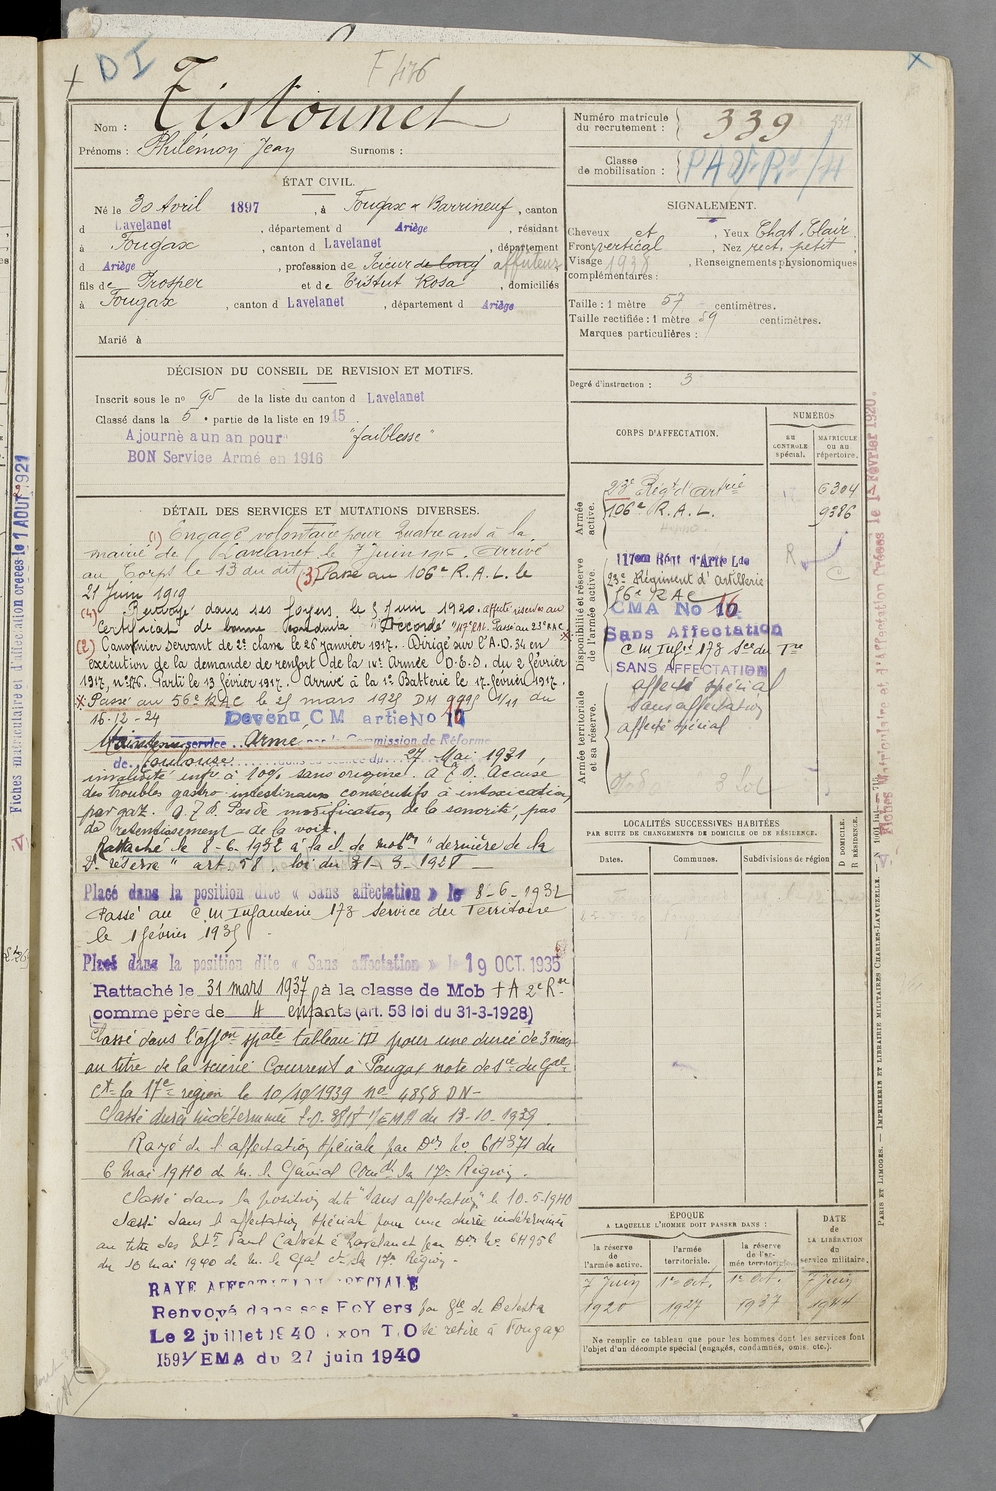 D I
F 476
Nom : Tistounet
Prénoms : Philémon Jean Surnoms :
Numéro matricule du recrutement : 339
Classe de mobilisation :
ÉTAT CIVIL.
Né le 30 Avril 1897, à Fougax & Barrineuf, canton
d Lavelanet, département d Ariège, résidant
à Fougax, canton d Lavelanet, département
d Ariège, profession de Scieur de long affuteur
fils de Prosper et de Tistut Rosa, domiciliés
à Fougax, canton d Lavelanet, département d Ariège
Marié à
SIGNALEMENT.
Cheveux ct, Yeux Chat. Clair,
Front vertical, Nez rect. petit
Visage 1938, Renseignements physionomiques
complémentaires :
Taille : 1 mètre 57 centimètres.
Taille rectifiée : 1 mètre 59 centimètres.
Marques particulières :
Degré d'instruction : 3
DÉCISION DU CONSEIL DE REVISION ET MOTIFS.
Inscrit sous le no 95 de la liste du canton d Lavelanet
Classé dans la 5e partie de la liste en 1915.
Ajourné a un an pour "faiblesse"
BON Service Armé en 1916
DÉTAIL DES SERVICES ET MUTATIONS DIVERSES.
(1) Engagé volontaire pour quatre ans à la
mairie de Lavelanet le 7 juin 1916. Arrivé
au Corps le 13 du dit (3) Passé au 106e R.A.L. le
21 Juin 1919
(4) Renvoyé dans ses foyers le 5 Juin 1920. affecté réserves au
Certificat de bonne conduite "Accordé" 117e R.A.L. Passé au 23e R.A.C.
(2) Canonnier servant de 2e classe le 26 janvier 1917. Dirigé sur l'A.D. 34 en
exécution de la demande de renfort de la IVe Armée D.E.S. du 2 février
1917, no 176. Parti le 13 février 1917. arrivé à la 1e Batterie le 17 février 1917.
x Passé au 56e RAC le 25 mars 1925 DM 9995 1/11 du
16-12-24 Devenu CM artie No 16
Maintenu service Armé par la Commission de Réforme
de Toulouse dans sa séance du 27 Mai 1931,
invalidité infre à 10% sans origine. A.F.D. Accuse
des troubles gastro intestinaux consécutifs à intoxication
par gaz. A.F.D. Pas de modification de la sonorité, pas
de retentissement de la voix.
Rattaché le 8-6-1932 à la cl. de mobon "dernière de la
2e réserve" art. 58. loi du 31-3-1928
Placé dans la position dite « Sans affectation » le 8-6-1932
Passé au C.M Infanterie 178 Service du Territoire
le 1 février 1935
Placé dans la position dite « Sans affectation » le 19 OCT. 1935
Rattaché le 31 mars 1937 à la classe de Mob + A 2e Rve
comme père de 4 enfants (art. 58 loi du 31-3-1928)
Classé dans l'affon spale tableau III pour une durée de 3 mois
au titre de la scierie Courrent à Fougax note de sce du Gal
Ct la 17e région le 10/10/1939 no 4858 DN-
Classé durée indéterminée 1/EMA du 13-10-1939.
Rayé de l'affectation spéciale par Don No 6H371 du
6 mai 1940 de M. le Général Comdt la 17e Région.
Classé dans la position dite "Sans affectation" le 10-5-1940
Classé dans l'affectation spéciale pour une durée indéterminée
au titre des Ets Paul Calvet à Lavelanet par Don No 6H956
du 30 mai 1940 de M. le Gal Ct la 17e Région.
RAYE AFFECTATION SPECIALE
Renvoyé dans ses FoYers par Gie de Belesta
Le 2 juillet 1940 exon T.O Se retire à Fougax
1591/EMA du 27 juin 1940
CORPS D'AFFECTATION.
NUMÉROS
au CONTROLE spécial.
MATRICULE ou au répertoire.
Armée active.
23e Régt d'artrie 6304
106e R.A.L. 9386
Disponibilité et réserve de l'armée active.
117em Régt d'Artie Lde
23e Régiment d'artillerie
56e RAC
CMA No 16
Sans Affectation
C M Infie 178 Sce du Tre
SANS AFFECTATION
affecté spécial
Sans affectation
affecté spécial
Armée territoriale et sa réserve.
LOCALITÉS SUCCESSIVES HABITÉES
PAR SUITE DE CHANGEMENTS DE DOMICILE OU DE RÉSIDENCE.
Dates. Communes. Subdivisions de région
D DOMICILE.
R RÉSIDENCE.
ÉPOQUE
A LAQUELLE L'HOMME DOIT PASSER DANS :
la réserve de l'armée active.
l'armée territoriale.
la réserve de l'armée territoriale.
DATE de LA LIBÉRATION du service militaire.
7 Juin 1920
1er Oct. 1927
1er Oct. 1937
7 Juin 1944
Ne remplir ce tableau que pour les hommes dont les services font
l'objet d'un décompte spécial (engagés, condamnés, omis, etc.).
PARIS ET LIMOGES. — IMPRIMERIE ET LIBRAIRIE MILITAIRES CHARLES-LAVAUZELLE.
Fiches Matriculaire et d'Affectation Créées le 1er Février 1920.
Fiches matriculaire et d'affectation créées le 1 AOUT 1921